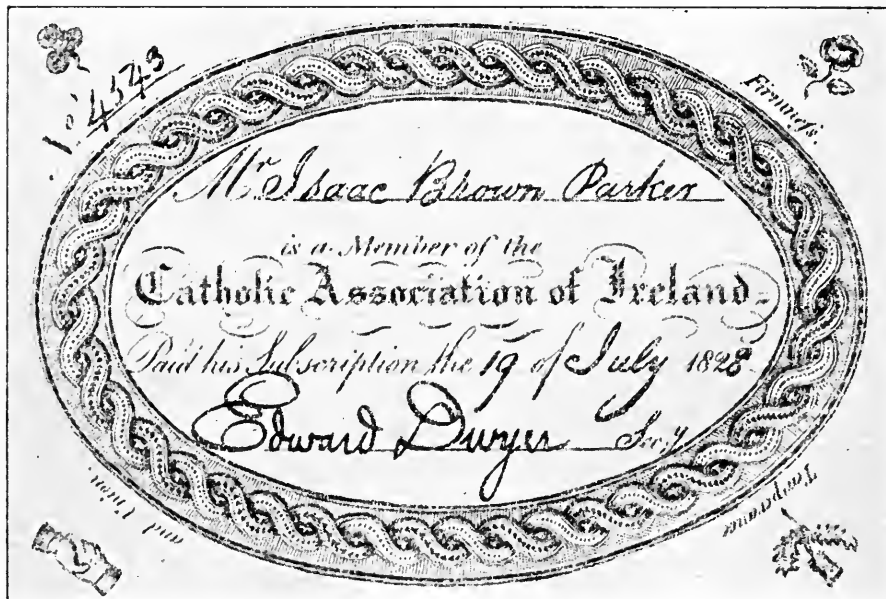 No. 4543
Firmness.
Mr. Isaac Brown Parker
is a Member of the
Catholic Association of Ireland.
Paid his Subscription the 19 of July 1828
Edward Dwyer Secy
Temperance
and Union.